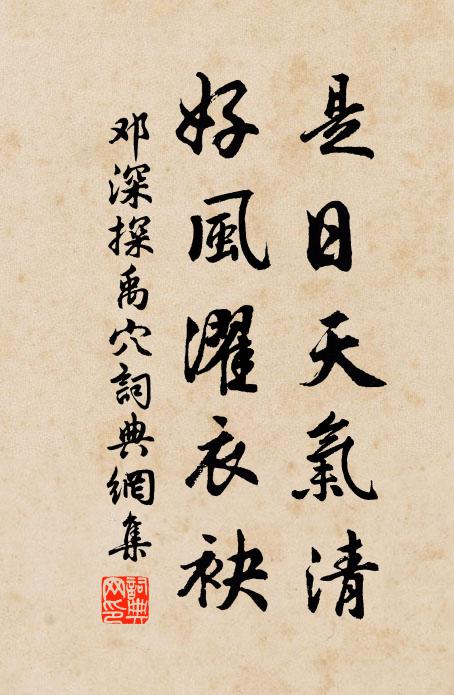 是日天氣清
好風濯衣袂
邓深探禹穴詞典網集
詞典
网印